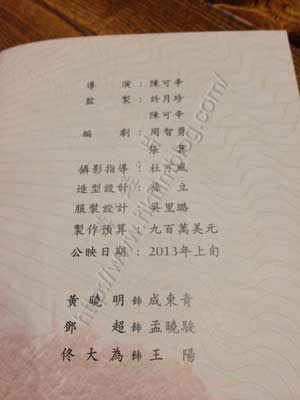 導演：陳可辛
監製：許月珍
陳可辛
編劇：周智勇
張冀
攝影指導：杜可風
造型設計：楊立
服裝設計：吳里璐
製作預算：九百萬美元
公映日期：2013年上旬
黃曉明飾成東青
鄧超飾孟曉駿
佟大為飾王陽